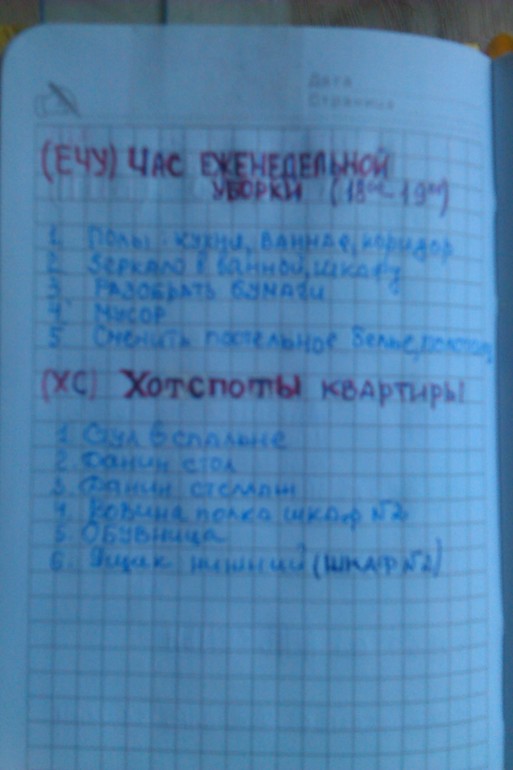 Дата
Страница
(ЕЧУ) ЧАС ЕЖЕНЕДЕЛЬНОЙ
УБОРКИ (18⁰⁰-19⁰⁰)
1. Полы: кухни, ванная, коридор
2. Зеркало в ванной, шкафу
3. РАЗОБРАТЬ БУМАГИ
4. МУСОР
5. Сменить постельное белье,
(ХС) ХОТСПОТЫ КВАРТИРЫ
1. Стул в спальне
2. Данин стол
3. Данин стеллаж
4. полка шкаф №2
5. Обувница
6. Ящик нижний (ШКАФ №2)